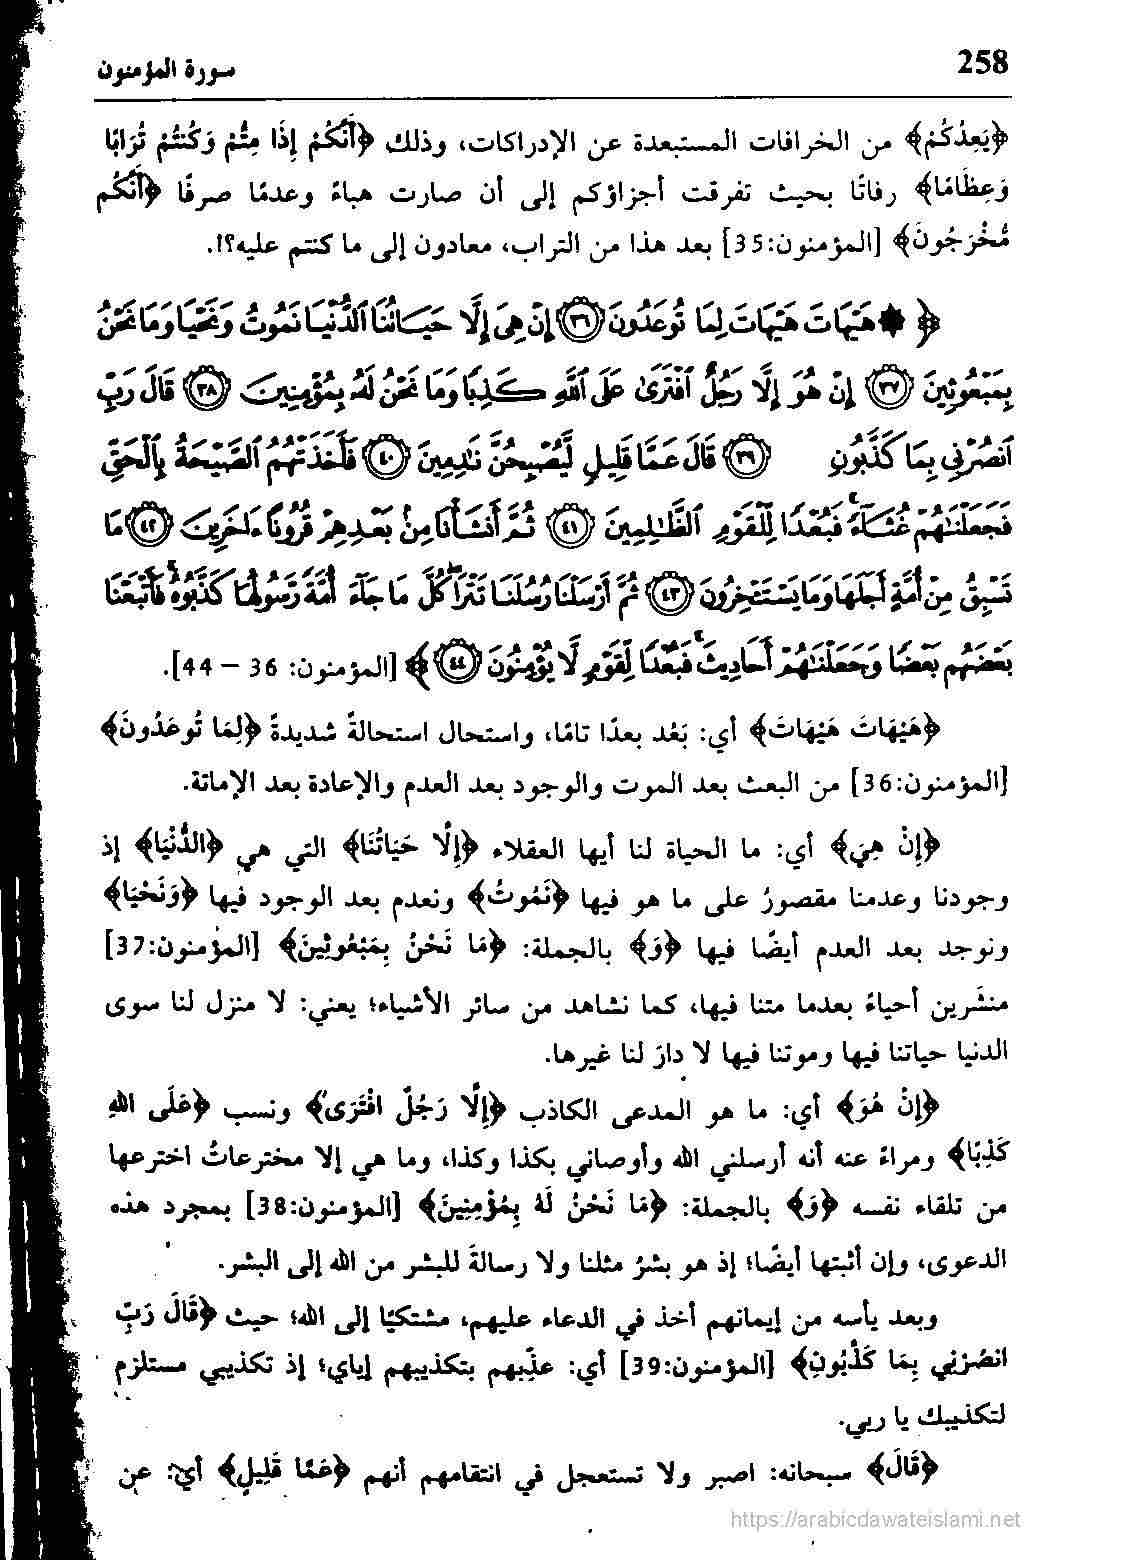 258
سورة المؤمنون
﴿يَعِدُكُمْ﴾ من الخرافات المستبعدة عن الإدراكات، وذلك ﴿أَنَّكُمْ إِذَا مِتُّمْ وَكُنتُمْ تُرَابًا
وَعِظَامًا﴾ رفاتًا بحيث تفرقت أجزاؤكم إلى أن صارت هباءً وعدمًا صرفًا ﴿أَنَّكُم
مُّخْرَجُونَ﴾ [المؤمنون:35] بعد هذا من التراب، معادون إلى ما كنتم عليه؟!.
﴿ ۞ هَيْهَاتَ هَيْهَاتَ لِمَا تُوعَدُونَ ﴿٣٦﴾ إِنْ هِيَ إِلَّا حَيَاتُنَا ٱلدُّنْيَا نَمُوتُ وَنَحْيَا وَمَا نَحْنُ
بِمَبْعُوثِينَ ﴿٣٧﴾ إِنْ هُوَ إِلَّا رَجُلٌ ٱفْتَرَىٰ عَلَى ٱللَّهِ كَذِبًا وَمَا نَحْنُ لَهُ بِمُؤْمِنِينَ ﴿٣٨﴾ قَالَ رَبِّ
ٱنصُرْنِي بِمَا كَذَّبُونِ ﴿٣٩﴾ قَالَ عَمَّا قَلِيلٍ لَّيُصْبِحُنَّ نَـٰدِمِينَ ﴿٤٠﴾ فَأَخَذَتْهُمُ ٱلصَّيْحَةُ بِٱلْحَقِّ
فَجَعَلْنَـٰهُمْ غُثَآءً ۚ فَبُعْدًا لِّلْقَوْمِ ٱلظَّـٰلِمِينَ ﴿٤١﴾ ثُمَّ أَنشَأْنَا مِنۢ بَعْدِهِمْ قُرُونًا ءَاخَرِينَ ﴿٤٢﴾ مَا
تَسْبِقُ مِنْ أُمَّةٍ أَجَلَهَا وَمَا يَسْتَـْٔخِرُونَ ﴿٤٣﴾ ثُمَّ أَرْسَلْنَا رُسُلَنَا تَتْرَا ۖ كُلَّ مَا جَآءَ أُمَّةً رَّسُولُهَا كَذَّبُوهُ ۚ فَأَتْبَعْنَا
بَعْضَهُم بَعْضًا وَجَعَلْنَـٰهُمْ أَحَادِيثَ ۚ فَبُعْدًا لِّقَوْمٍ لَّا يُؤْمِنُونَ ﴿٤٤﴾ ﴾ [المؤمنون: 36 – 44].
﴿هَيْهَاتَ هَيْهَاتَ﴾ أي: بَعُد بعدًا تامًا، واستحال استحالةً شديدةً ﴿لِمَا تُوعَدُونَ﴾
[المؤمنون:36] من البعث بعد الموت والوجود بعد العدم والإعادة بعد الإماتة.
﴿إِنْ هِيَ﴾ أي: ما الحياة لنا أيها العقلاء ﴿إِلَّا حَيَاتُنَا﴾ التي هي ﴿الدُّنْيَا﴾ إذ
وجودنا وعدمنا مقصورٌ على ما هو فيها ﴿نَمُوتُ﴾ ونعدم بعد الوجود فيها ﴿وَنَحْيَا﴾
ونوجد بعد العدم أيضًا فيها ﴿وَ﴾ بالجملة: ﴿مَا نَحْنُ بِمَبْعُوثِينَ﴾ [المؤمنون:37]
منشَرين أحياءً بعدما متنا فيها، كما نشاهد من سائر الأشياء؛ يعني: لا منزل لنا سوى
الدنيا حياتنا فيها وموتنا فيها لا دارَ لنا غيرها.
﴿إِنْ هُوَ﴾ أي: ما هو المدعى الكاذب ﴿إِلَّا رَجُلٌ افْتَرَى﴾ ونسب ﴿عَلَى اللهِ
كَذِبًا﴾ ومراءً عنه أنه أرسلني الله وأوصاني بكذا وكذا، وما هي إلا مخترعاتٌ اخترعها
من تلقاء نفسه ﴿وَ﴾ بالجملة: ﴿مَا نَحْنُ لَهُ بِمُؤْمِنِينَ﴾ [المؤمنون:38] بمجرد هذه
الدعوى، وإن أثبتها أيضًا؛ إذ هو بشرٌ مثلنا ولا رسالةَ للبشر من الله إلى البشر.
وبعد يأسه من إيمانهم أخذ في الدعاء عليهم، مشتكيًا إلى الله؛ حيث ﴿قَالَ رَبِّ
انصُرْنِي بِمَا كَذَّبُونِ﴾ [المؤمنون:39] أي: عذِّبهم بتكذيبهم إياي؛ إذ تكذيبي مستلزم
لتكذيبك يا ربي.
﴿قَالَ﴾ سبحانه: اصبر ولا تستعجل في انتقامهم أنهم ﴿عَمَّا قَلِيلٍ﴾ أي: عن
https://arabicdawateislami.net